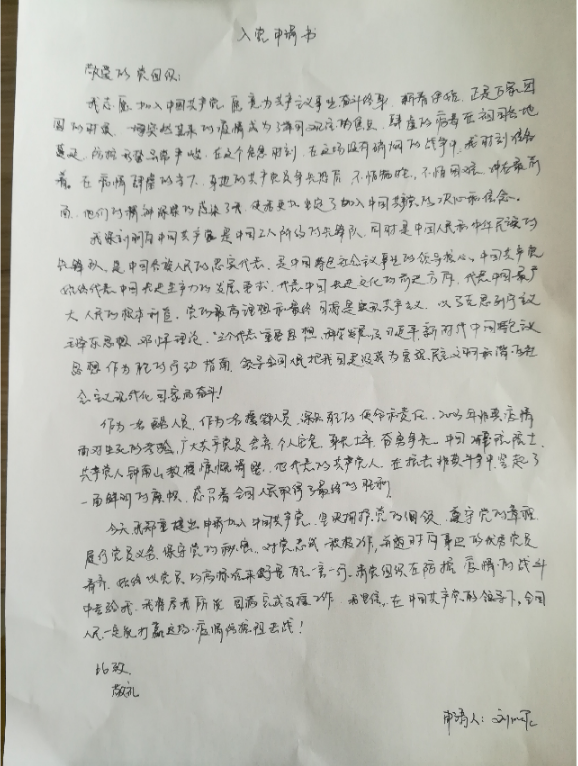 入党申请书
敬爱的党组织：
我志愿加入中国共产党，愿意为共产主义事业奋斗终身。新春伊始，正是万家团
圆的时候，一场突然其来的疫情成为了举国关注的焦点，肆虐的病毒在祖国各地
蔓延，防控形势异常严峻。在这个危急时刻，在这场没有硝烟的战争中，我时刻
着。在疫情肆虐的当下，身边的共产党员争先恐后，不怕牺牲，不怕困难，冲在最前
面，他们的精神深深的感染了我，使我更加坚定了加入中国共产党的决心和信念。
我深刻明白中国共产党是中国工人阶级的先锋队，同时是中国人民和中华民族的
先锋队，是中国各族人民的忠实代表，是中国特色社会主义事业的领导核心。中国共产党
始终代表中国先进生产力的发展要求，代表中国先进文化的前进方向，代表中国最广
大人民的根本利益。党的最高理想和最终目标是实现共产主义。以马克思列宁主义
毛泽东思想、邓小平理论、“三个代表”重要思想、科学发展观、习近平新时代中国特色主义
思想作为自己的行动指南，领导全国人民把我国建设成为富强、民主、文明、和谐的社
会主义现代化国家而奋斗！
作为一名 人员，作为一名援鄂人员，深知自己的使命和责任。2003年非典疫情
面对生死的考验，广大共产党员舍弃个人安危，身先士卒，奋勇争先。中国工程院院士、
共产党人钟南山教授 ，他代表的共产党人在抗击非典斗争中竖起了
一面鲜明的旗帜，带领着全国人民取得了最终的胜利。
今天我郑重提出申请加入中国共产党，坚决拥护党的纲领，遵守党的章程，
履行党员义务，保守党的秘密，对党忠诚，积极工作，并随时向身边的优秀党员
看齐，始终以党员的高标准来衡量自己一言一行。请党组织在防控疫情的战斗
中考验我，我将尽我所能 支援工作。我坚信，在中国共产党的领导下，全国
人民一定能打赢这场疫情防控阻击战！
此致
敬礼
申请人：刘